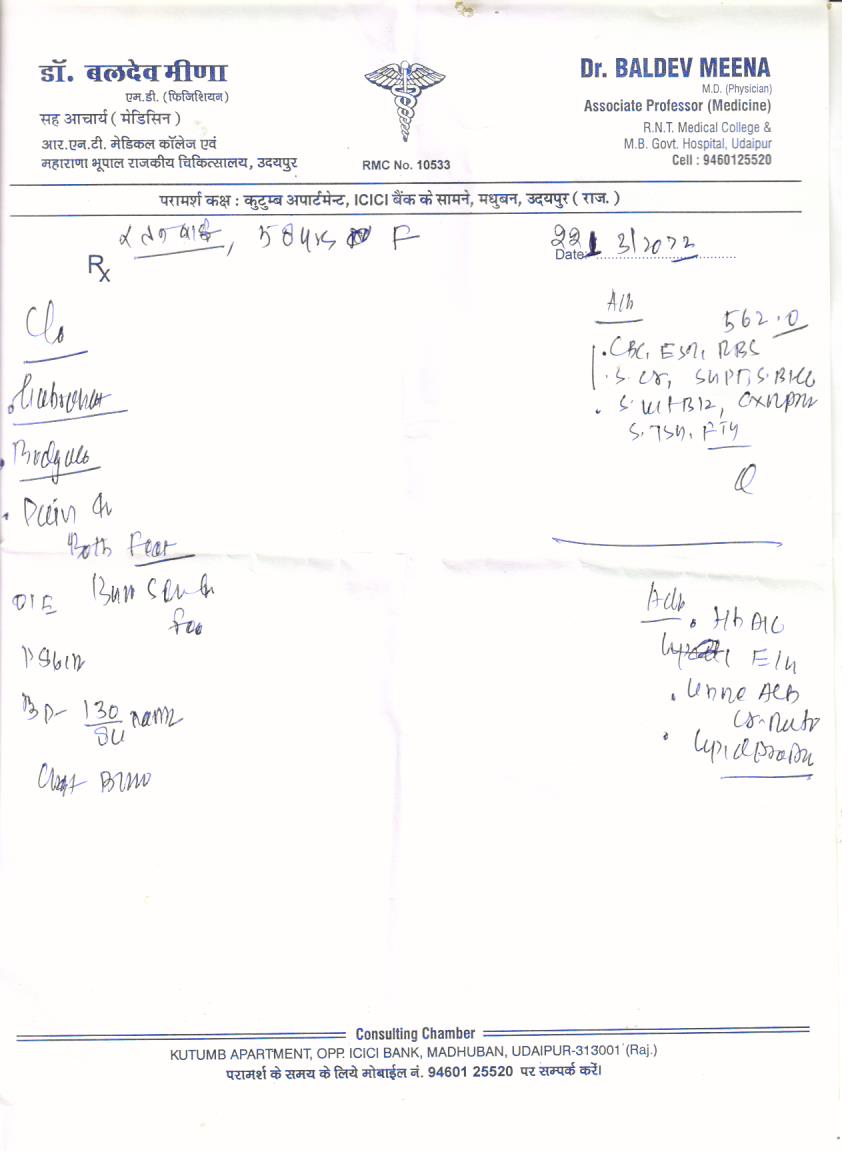 डॉ. बलदेव मीणा
एम.डी. (फिजिशियन)
सह आचार्य ( मेडिसिन )
आर.एन.टी. मेडिकल कॉलेज एवं
महाराणा भूपाल राजकीय चिकित्सालय, उदयपुर
RMC No. 10533
Dr. BALDEV MEENA
M.D. (Physician)
Associate Professor (Medicine)
R.N.T. Medical College &
M.B. Govt. Hospital, Udaipur
Cell : 9460125520
परामर्श कक्ष : कुटुम्ब अपार्टमेन्ट, ICICI बैंक के सामने, मधुबन, उदयपुर ( राज. )
रतन बाई, 58 yrs F
Rx
Date: 22/3/2022
C/o
Pain in
Both Feet
O/E
BP- 130
Chest
Adv
562.0
CBC, ESR, RBS
S. Cr, SGPT, S. Bili
S. Vit B12,
S. TSH,
Adv
HbA1C
Urine Alb
Lipid profile
Consulting Chamber
KUTUMB APARTMENT, OPP. ICICI BANK, MADHUBAN, UDAIPUR-313001 (Raj.)
परामर्श के समय के लिये मोबाईल नं. 94601 25520 पर सम्पर्क करें।